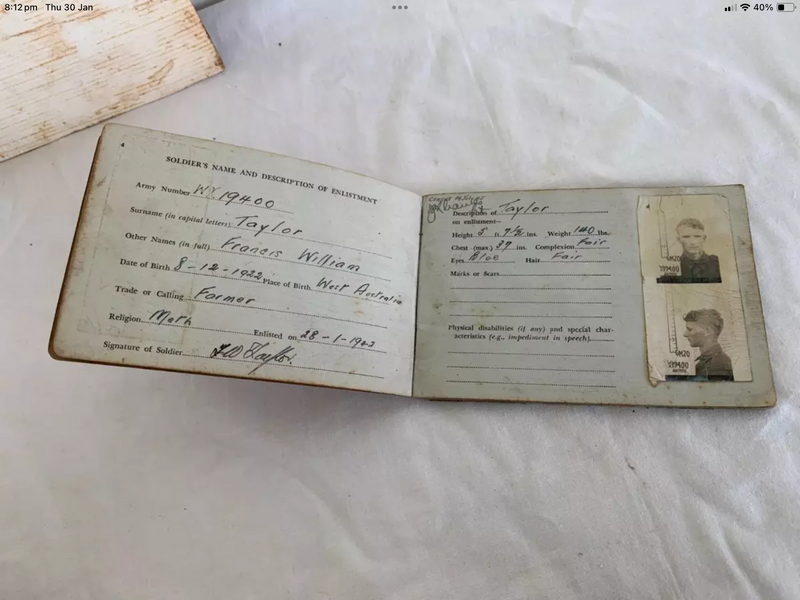 8:12 pm Thu 30 Jan
40%
4
SOLDIER'S NAME AND DESCRIPTION OF ENLISTMENT
Army Number WX 19400
Surname (in capital letters) Taylor
Other Names (in full) Francis William
Date of Birth 8-12-1922 Place of Birth West Australia
Trade or Calling Farmer
Religion Meth Enlisted on 28-1-1942
Signature of Soldier F W Taylor.
Description of Taylor
on enlistment—
Height 5 ft 9½ ins. Weight 140 lbs.
Chest (max.) 39 ins. Complexion Fair
Eyes Blue Hair Fair
Marks or Scars
Physical disabilities (if any) and special char-
acteristics (e.g., impediment in speech).